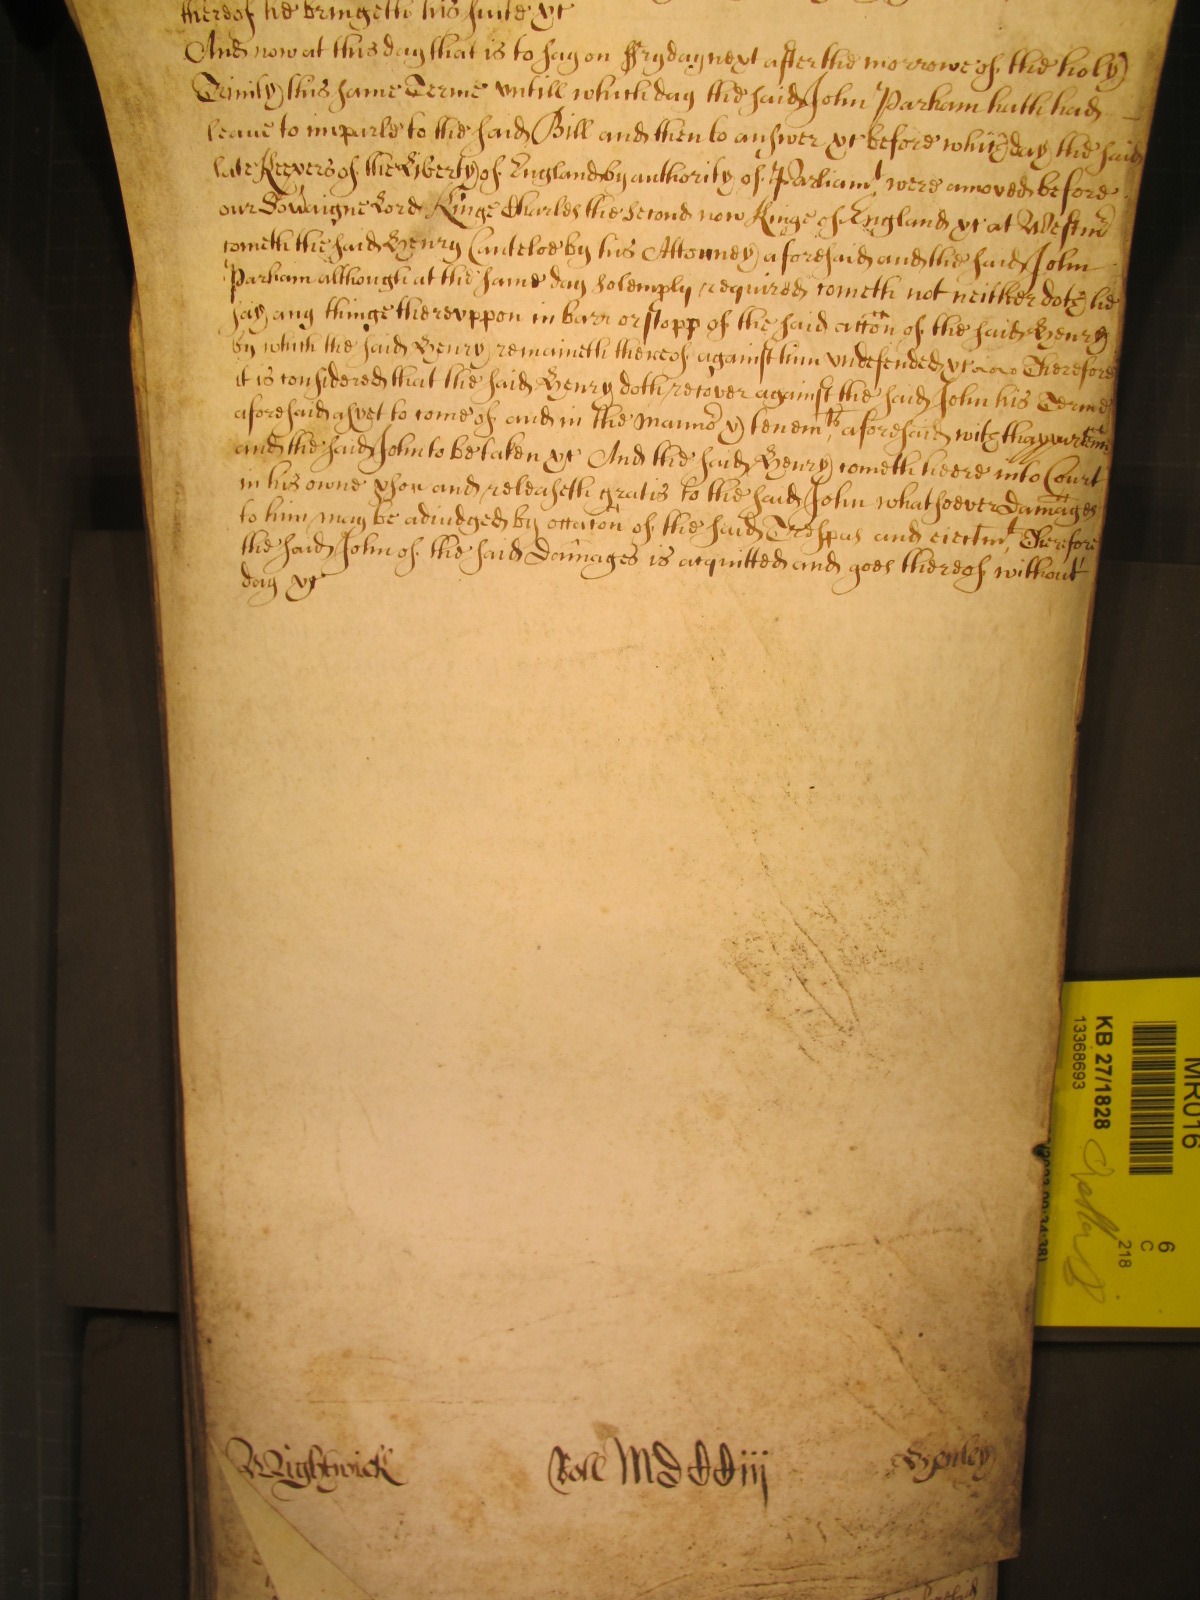 thereof he bringeth his suite &c
And now at this day that is to say on ffryday next after the morrowe of the holy
Trinity this same Terme untill which day the said John Parham hath had
leave to imparle to the said Bill and then to answer &c before which day the said
late Keepers of the Liberty of England by authority of Parliamt were amoved before
our Sov'aigne Lord Kinge Charles the second now Kinge of England &c at Westm'
cometh the said Henry Canteloe by his Attorney aforesaid and the said John
Parham although at the same day solemply required cometh not neither doth he
say any thinge thereuppon in barr or stopp of the said accon of the said Henry
by which the said Henry remaineth thereof against him undefended &c Therefore
it is considered that the said Henry doth recover against the said John his Terme
aforesaid as yet to come of and in the Mannor & tenemts aforesaid with thappurten
and the said John to be taken &c And the said Henry cometh heere into Court
in his owne pson and releaseth gratis to the said John whatsoever Damages
to him may be adiudged by occacon of the said Trespas and eiectmt Therefore
the said John of the said Damages is acquitted and goes thereof without
day &c
Wightwick Roll MDCCiii
KB 27/1828
13368693
MR016
6
C
218